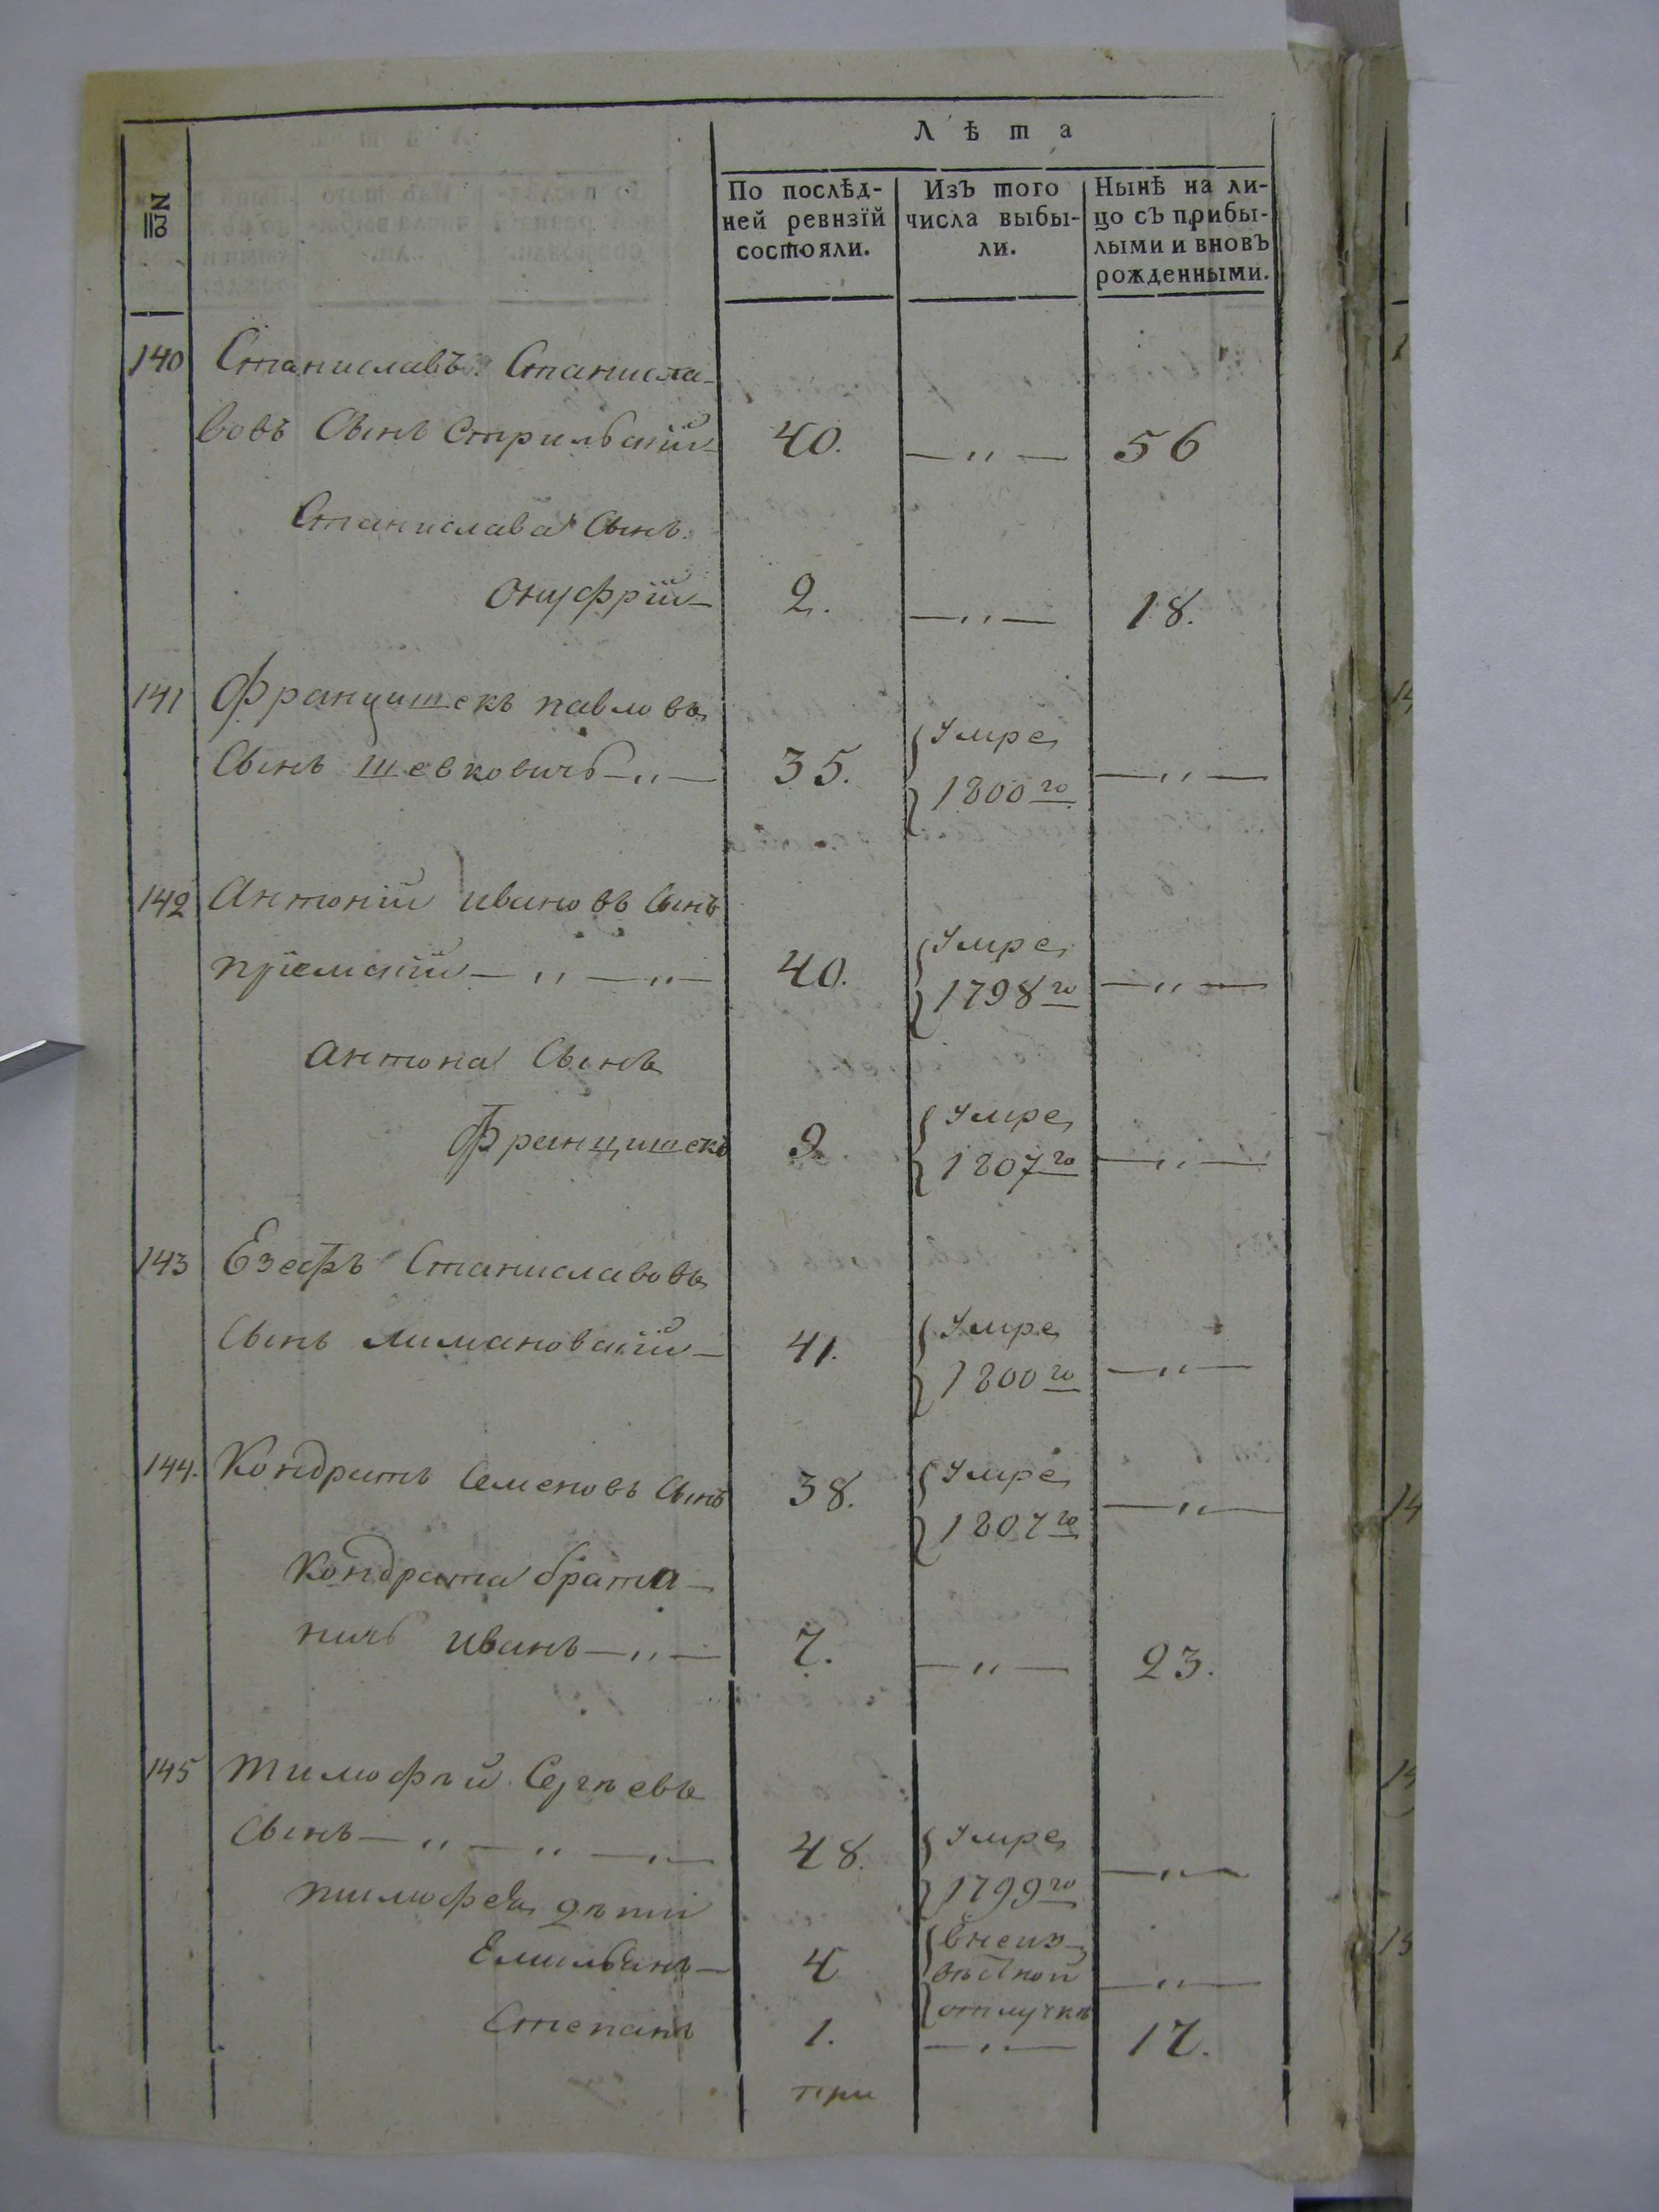 Лѣта
№
По послѣд-
ней ревизїй
состояли.
Изъ того
числа выбы-
ли.
Нынѣ на ли-
цо съ прибы-
лыми и вновъ
рожденными.
140 Станиславъ Станисла-
вовъ Сынъ Стрильскїй 40. —„— 56
Станислава Сынъ
Онуфрїй 2. —„— 18.
141 Францишекъ павловъ
Сынъ шевковичь —„— 35. Умре 1800го —„—
142 Антонїй ивановъ Сынъ
прїемскїй —„—„— 40. Умре 1798го —„—
антона Сынъ
Францишекъ 9. Умре 1807го —„—
143 Езефъ Станиславовъ
Сынъ лимановскїй 41. Умре 1800го —„—
144. Кондратъ Семеновъ Сынъ 38. Умре 1807го —„—
Кондрата брата-
ничь иванъ —„— 7. —„— 23.
145 Тимофѣй Сергѣевъ
Сынъ —„—„—„— 48. Умре 1799го —„—
тимофея дѣти
Емильянъ 4 Внеиз-
вѣстной
отлучкѣ —„—
Степанъ 1. —„— 17.